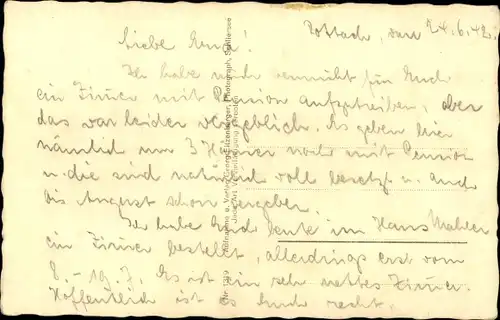 Rottach, den 24.6.42.
Liebe Erna!
Ich habe mich bemüht für Euch
ein Zimmer mit Pension aufzutreiben, aber
das war leider vergeblich. Es geben hier
nämlich nur 3 Häuser noch mit Pension
u. die sind natürlich voll besetzt u. auch
bis August schon vergeben.
Ich habe Euch heute im Haus Mahler
ein Zimmer bestellt, allerdings erst vom
8. - 19.7. Es ist ein sehr nettes Zimmer.
Hoffentlich ist es Euch recht.
Aufnahme u. Verlag Georg Eizenberger, Photograph, Schliersee
Jede Art Vervielfältigung verboten
Nr.